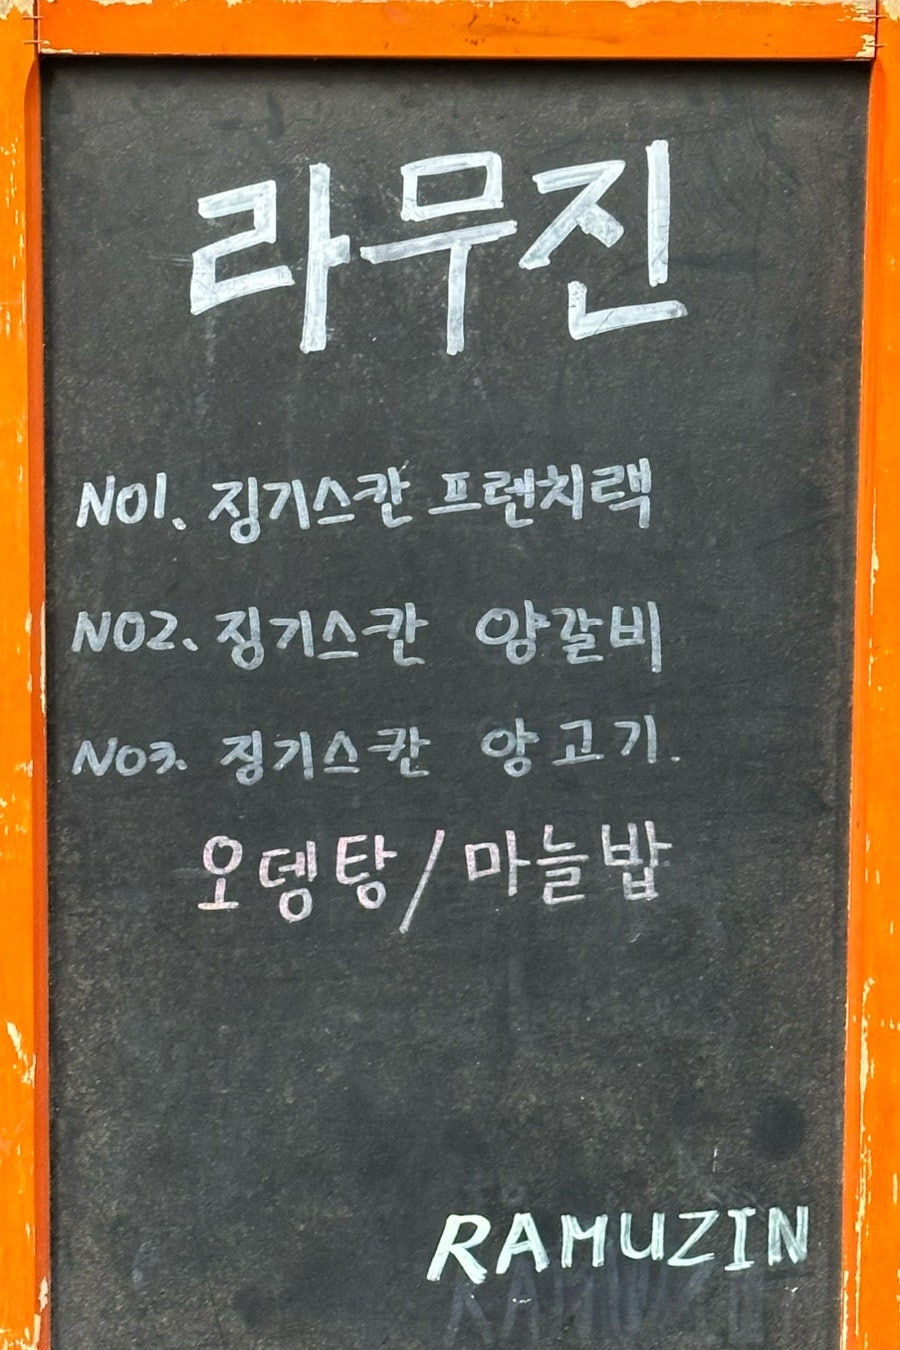 라무진
NO1. 징기스칸 프렌치랙
NO2. 징기스칸 양갈비
NO3. 징기스칸 양고기.
오뎅탕/마늘밥
RAMUZIN